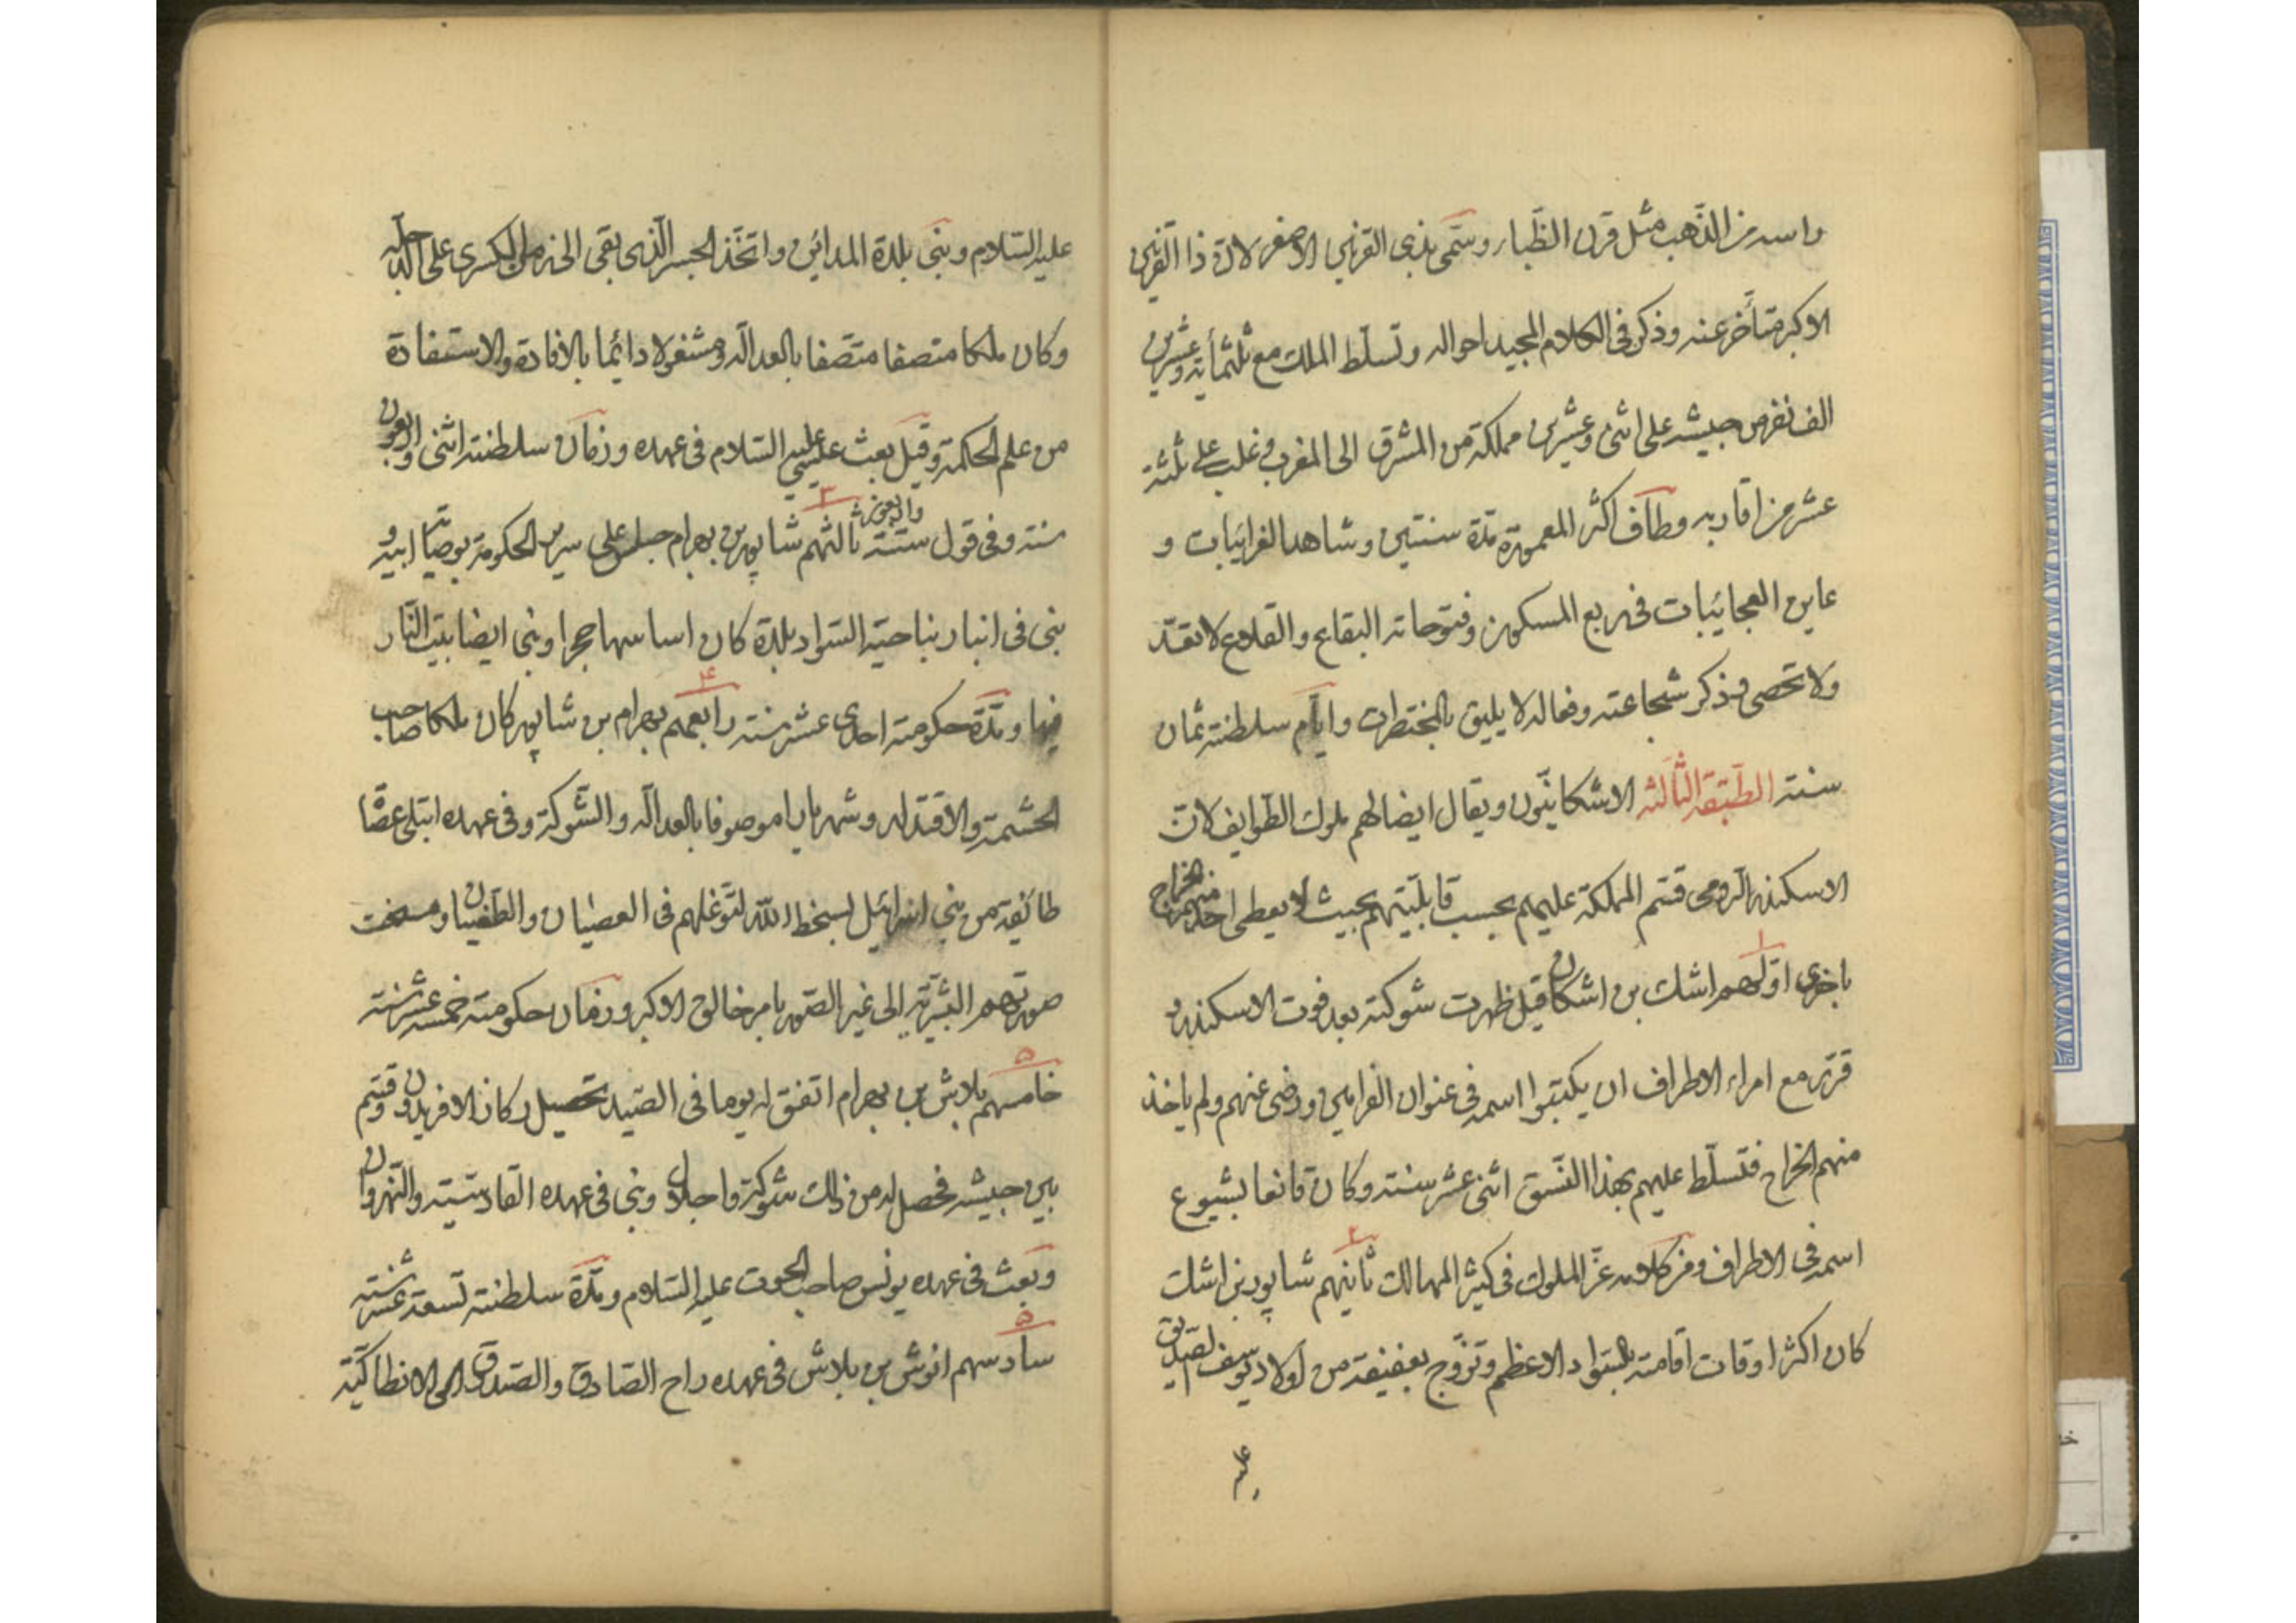 راسه من الذّهب مثل قرن الظّبا وسمّى بذى القرنين الاصغر لانّ ذا القرنين
الاكبر متأخر عنه وذكر فى الكلام المجيد احواله وتسلّط الملك مع ثلثمأية وعشرين
الف نفر من جيشه على اثنى وعشرين مملكة من المشرق الى المغرب وغلب على ثلثة
عشر من اقاربه وطاف اكثر المعمورة مدّة سنتين وشاهد الغرايبات و
عاين العجايبات فى ربع المسكون وفتوحاته البقاع والقلاع لا تعدّ
ولا تحصى فذكر شجاعته وفعاله لا يليق بالمختصرات وايّام سلطنته ثمان
سنة الطّبقة الثّالثة الاشكانيّون ويقال ايضا لهم ملوك الطّوايف لانّ
الاسكندر الرومى قسّم المملكة عليهم بحسب قابليّتهم بحيث لا يعطى احد منهم الخراج
باخرى اوّلهم اشك بن اشكان قيل ظهرت شوكته بعد فوت الاسكندر و
قرّر مع امراء الاطراف ان يكتبوا اسمه فى عنوان الفرامين ورضى عنهم ولم ياخذ
منهم الخراج فتسلّط عليهم بهذا النّسق اثنى عشر سنة وكان قانعا بشيوع
اسمه فى الاطراف ومن كلامه عزّ الملوك فى كثير الممالك ثانيهم شاپور بن اشك
كان اكثر اوقات اقامته بالسّواد الاعظم وتزوّج بعفيفة من اولاد يوسف الصّدّيق
عليه
عليه السّلام وبنى بلدة المداين واتّخذ الجسر الّذى بقى الى زمان الكسرى على الدّجله
وكان ملكا منصفا متّصفا بالعدالة ومشغولا دائما بالافادة والاستفادة
من علم الحكمة وقيل بعث عيسى عليه السّلام فى عهده وزمان سلطنته اثنى واربعون
سنة وفى قول ستّة واربعون ثالثهم شاپور بن بهرام جلس على سرير الحكومة بوصيّة ابيه و
بنى فى انبار بناحية السّواد بلدة كان اساسها حجرا وبنى ايضا بيت النّار
فيها ومدّة حكومته احدى عشر سنة رابعهم بهرام بن شاپور كان ملكا صاحب
الحشمة والاقتدار وشهريارا موصوفا بالعدالة والشّوكة وفى عهده ابتلى عصّا
طائفة من بنى اسرائيل بسخط اللّه لتوغّلهم فى العصيان والطّغيان ومسخت
صورتهم البشريّة الى غير الصّور بامر خالق الاكبر وزمان حكومته خمسه عشر سنة
خامسهم بلاش بن بهرام اتفق له يوما فى الصّيد تحصيل ركاز الافريدون وقسّم
بين جيشه فحصل له من ذلك شوكة واجلال وبنى فى عهده القادسيّة والنّهروان
وبعث فى عهده يونس صاحب الحوت عليه السّلام ومدّة سلطنته تسعة عشر سنة
سادسهم انوش بن بلاش فى عهده راح الصّادق والصّدوق الى الانطاكيّة